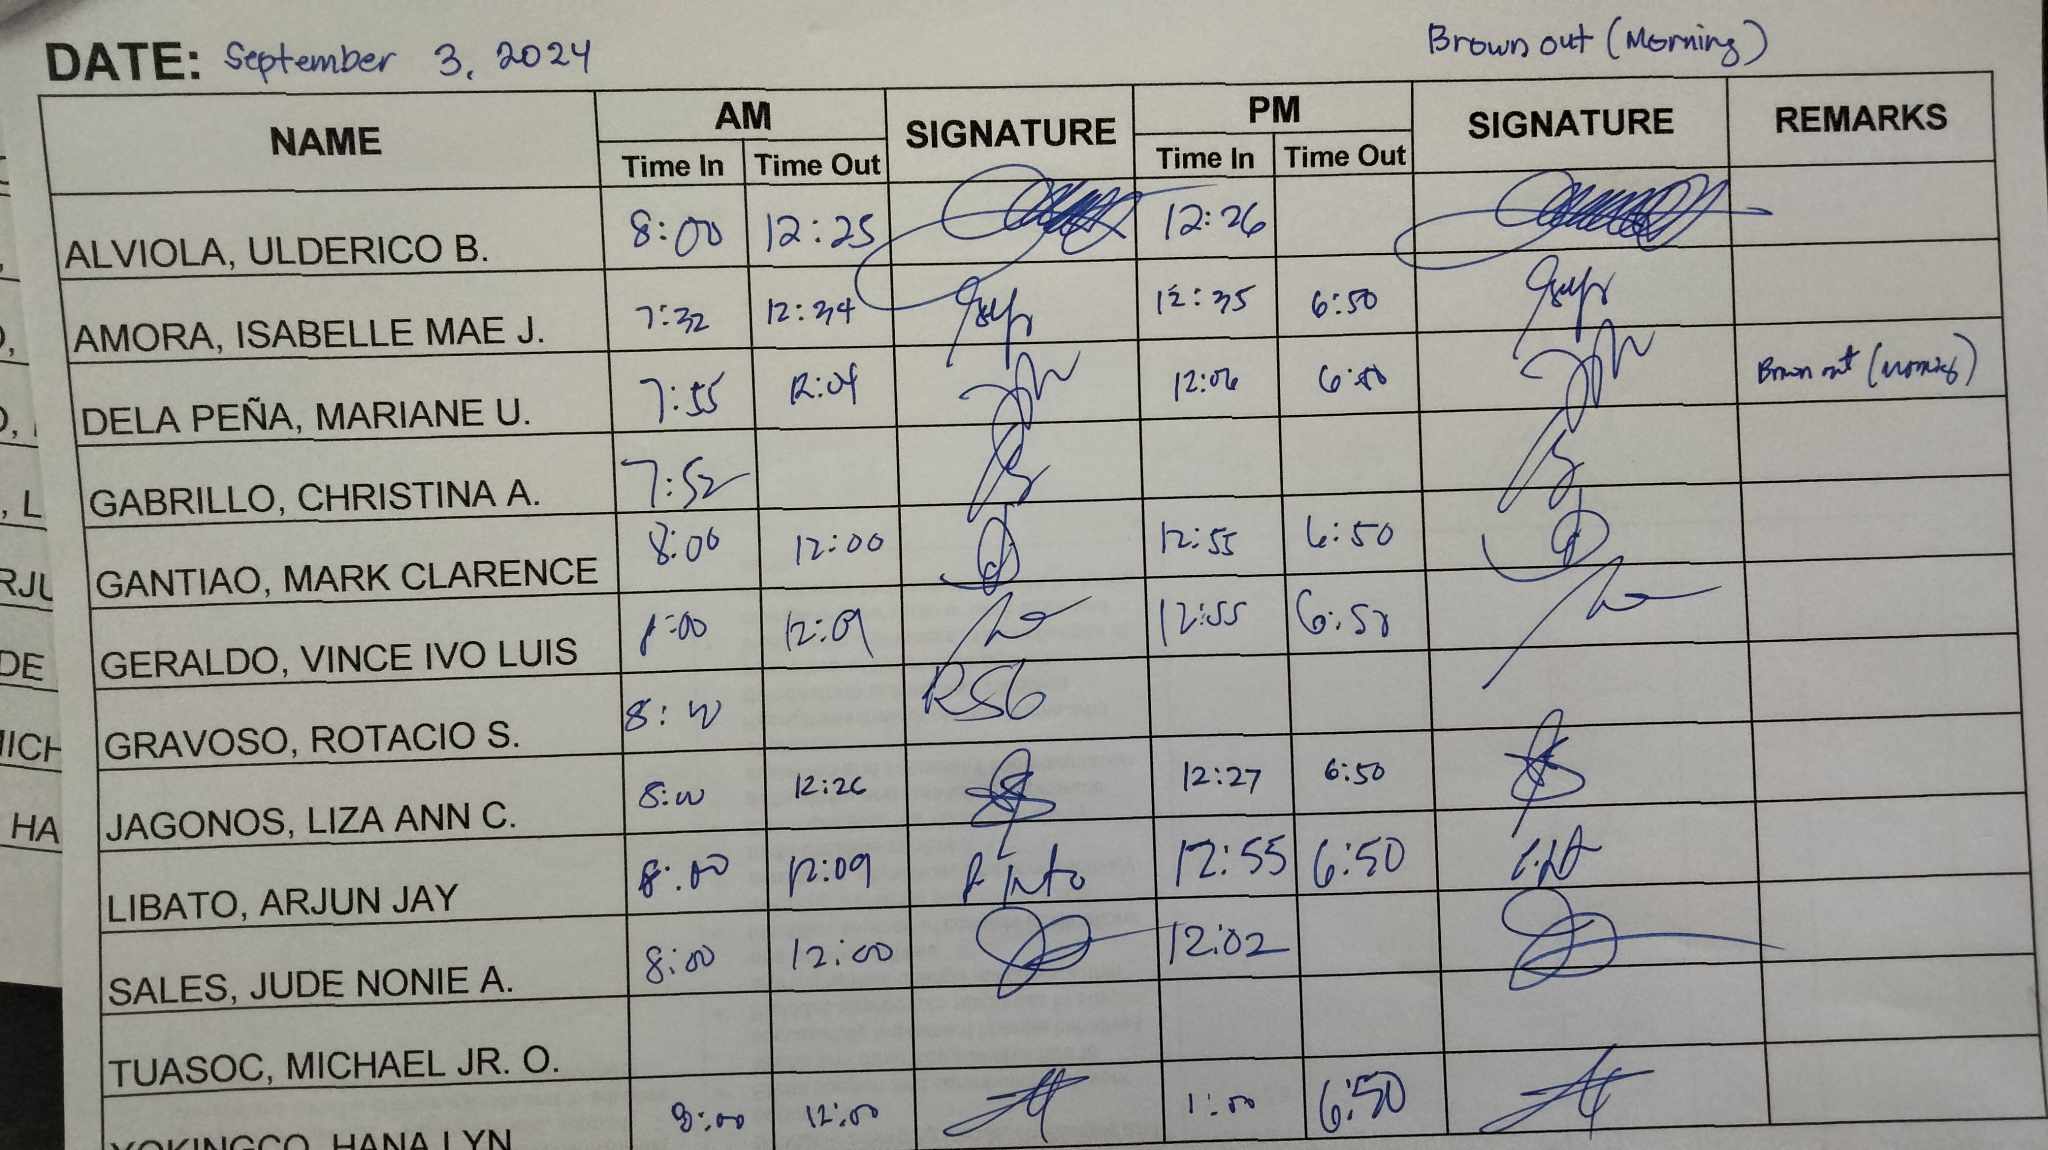 DATE: September 3, 2024 Brown out (Morning)
NAME AM SIGNATURE PM SIGNATURE REMARKS
Time In Time Out Time In Time Out
ALVIOLA, ULDERICO B. 8:00 12:25 12:26
AMORA, ISABELLE MAE J. 7:32 12:34 12:35 6:50
DELA PEÑA, MARIANE U. 7:55 12:04 12:06 6:50 Brown out (Morning)
GABRILLO, CHRISTINA A. 7:52
GANTIAO, MARK CLARENCE 8:00 12:00 12:55 6:50
GERALDO, VINCE IVO LUIS 8:00 12:09 12:55
GRAVOSO, ROTACIO S. 8:00 RSG
JAGONOS, LIZA ANN C. 8:00 12:26 12:27 6:50
LIBATO, ARJUN JAY 8:00 12:09 12:55 6:50
SALES, JUDE NONIE A. 8:00 12:00 12:02
TUASOC, MICHAEL JR. O.
YOKINGCO, HANA LYN 8:00 12:00 1:00 6:50